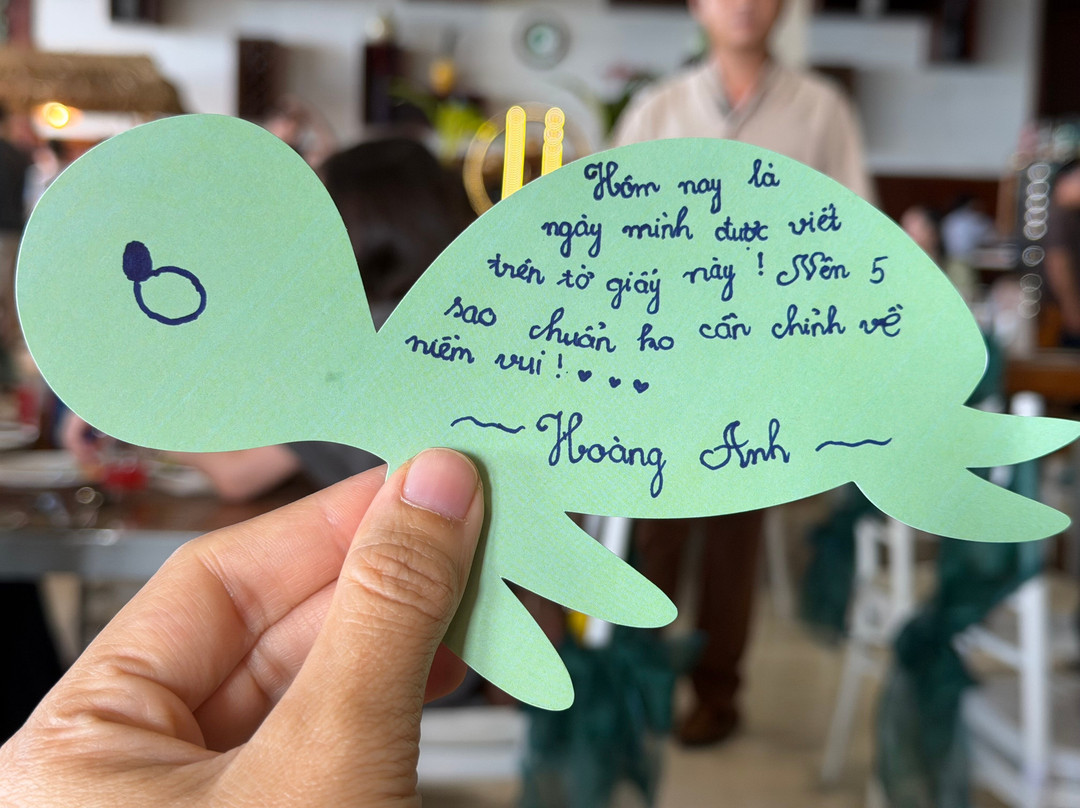 Hôm nay là
ngày mình được viết
trên tờ giấy này ! Nên 5
sao chuẩn ko cần chỉnh về
niềm vui ! ♥ ♥ ♥
~ Hoàng Anh ~